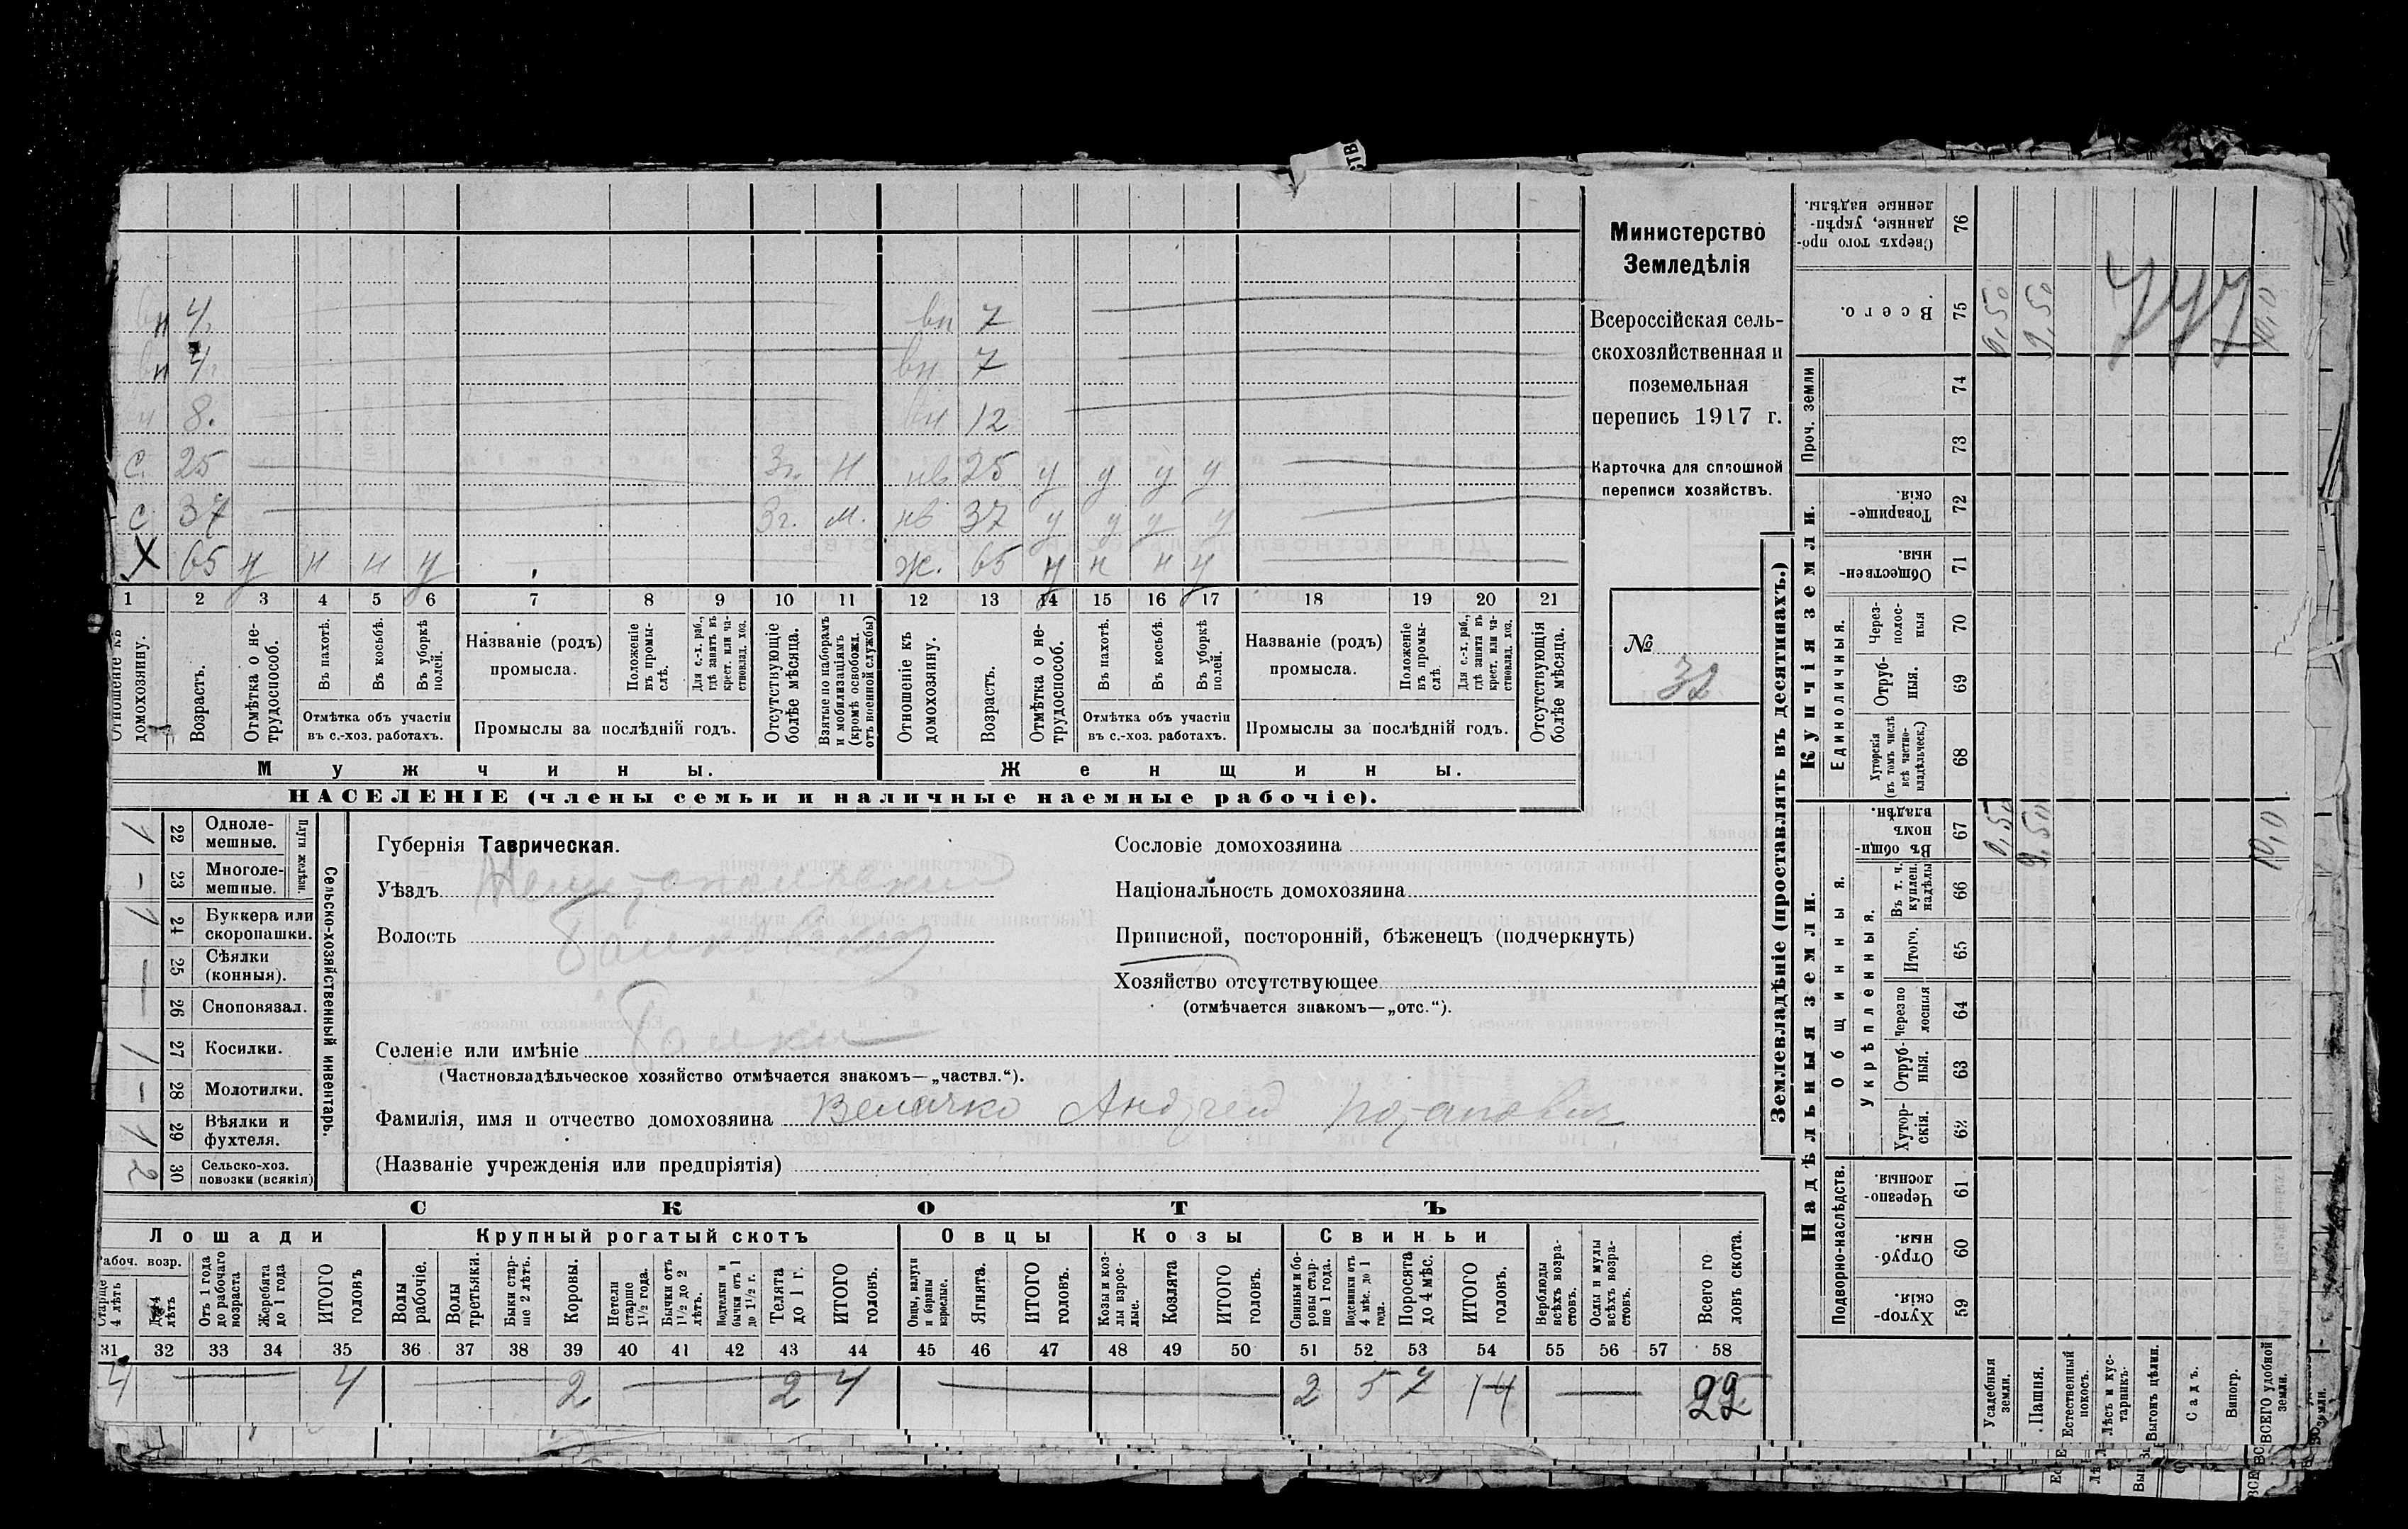 Министерство
Земледѣлія
Всероссійская сель-
скохозяйственная и
поземельная
перепись 1917 г.
Карточка для сплошной
переписи хозяйствъ.
№
32
вн 4. вн 7
вн 4. вн 7
вн 8. вн 12
с. 25 3г. н нв 25 у у у у
с. 37 3г. м. нв 37 у у у у
Х 65 у н н у ж. 65 у н н у
1 2 3 4 5 6 7 8 9 10 11 12 13 14 15 16 17 18 19 20 21
Отношеніе къ домохозяину.
Возрастъ.
Отмѣтка о не-
трудоспособ.
Въ пахотѣ.
Въ косьбѣ.
Въ уборкѣ полей.
Отмѣтка объ участіи
въ с.-хоз. работахъ.
Названіе (родъ)
промысла.
Положеніе
въ промы-
слѣ.
Для с.-х. раб.,
гдѣ занятъ въ
крест. или ча-
стновлад. хоз.
Промыслы за послѣдній годъ.
Отсутствующіе
болѣе мѣсяца.
Взятые по наборамъ
и мобилизаціямъ
(кромѣ освобожд.
отъ военной службы)
Отношеніе къ
домохозяину.
Возрастъ.
Отмѣтка о не-
трудоспособ.
Въ пахотѣ.
Въ косьбѣ.
Въ уборкѣ
полей.
Отмѣтка объ участіи
въ с.-хоз. работахъ.
Названіе (родъ)
промысла.
Положеніе
въ промы-
слѣ
Для с.-х. раб.,
гдѣ занята въ
крест. или ча-
стновлад. хоз.
Промыслы за послѣдній годъ.
Отсутствующія
болѣе мѣсяца.
Мужчины.
Женщины.
НАСЕЛЕНІЕ (члены семьи и наличные наемные рабочіе).
Сельско-хозяйственный инвентарь.
Плуги желѣзн.
1 22 Одноле-
мешные.
– 23 Многоле-
мешные.
1 24 Буккера или
скоропашки.
— 25 Сѣялки
(конныя).
26 Сноповязал.
1 27 Косилки.
– 28 Молотилки.
1 29 Вѣялки и
фухтеля.
2 30 Сельско-хоз.
повозки (всякія)
Губернія Таврическая.
Уѣздъ Мелитопольский
Волость
Селеніе или имѣніе
(Частновладѣльческое хозяйство отмѣчается знакомъ—„частвл.“).
Фамилія, имя и отчество домохозяина Величко Андрей
(Названіе учрежденія или предпріятія)
Сословіе домохозяина
Національность домохозяина
Приписной, посторонній, бѣженецъ (подчеркнуть)
Хозяйство отсутствующее
(отмѣчается знакомъ—„отс.“).
СКОТЪ
Лошади
Крупный рогатый скотъ
Овцы
Козы
Свиньи
Рабоч. возр.
Старше
4 лѣтъ
До 4
лѣтъ
Отъ 1 года
до рабочаго
возраста
Жеребята
до 1 года
ИТОГО
головъ
Волы
рабочіе.
Волы
третьяки.
Быки стар-
ше 2 лѣтъ.
Коровы.
Нетели
старше
1½ года.
Бычки отъ
1½ до 2
лѣтъ.
Подтелки и
бычки отъ 1
до 1½ г.
Телята
до 1 г.
ИТОГО
головъ.
Овцы, валухи
и бараны
взрослые.
Ягнята.
ИТОГО
головъ.
Козы и коз-
лы взрос-
лые.
Козлята
ИТОГО
головъ.
Свиньи и бо-
ровы стар-
ше 1 года.
Подсвинки отъ
4 мѣс. до 1
года.
Поросята
до 4 мѣс.
ИТОГО
головъ.
Верблюды
всѣхъ возра-
стовъ.
Ослы и мулы
всѣхъ возра-
стовъ.
Всего го
ловъ скота.
31 32 33 34 35 36 37 38 39 40 41 42 43 44 45 46 47 48 49 50 51 52 53 54 55 56 57 58
4 — 4 — 2 — 2 4 — 2 5 7 14 — 22
Землевладѣніе (проставлять въ десятинахъ.)
Купчія земли.
Надѣльныя земли.
Сверхъ того про-
данные, укрѣп-
ленные надѣлы.
76
Всего.
75
0,50
9,50
10,0
Проч. земли
74
73
Товарище-
скія.
72
Обществен-
ныя
71
Единоличныя.
Через-
полос-
ныя
70
Отруб-
ныя.
69
Хуторскія
(въ томъ числѣ
всѣ частно-
владѣльческ.)
68
Общинныя.
Въ общи-
номъ
владѣн.
67
0,50
9,50
10,0
Укрѣпленныя.
Въ т. ч.
куплен.
надѣлы
66
Итого.
65
Черезпо
лосныя
64
Отруб-
ныя.
63
Хутор-
скія.
62
Подворно-наслѣдств.
Черезпо-
лосныя.
61
Отруб-
ныя.
60
Хутор-
скія.
59
Усадебныя
земли.
Пашня.
Естественный
покосъ.
Лѣсъ и кус-
тарникъ.
Выгонъ цѣлин.
Садъ.
Виногр.
ВСЕГО удобной
земли.